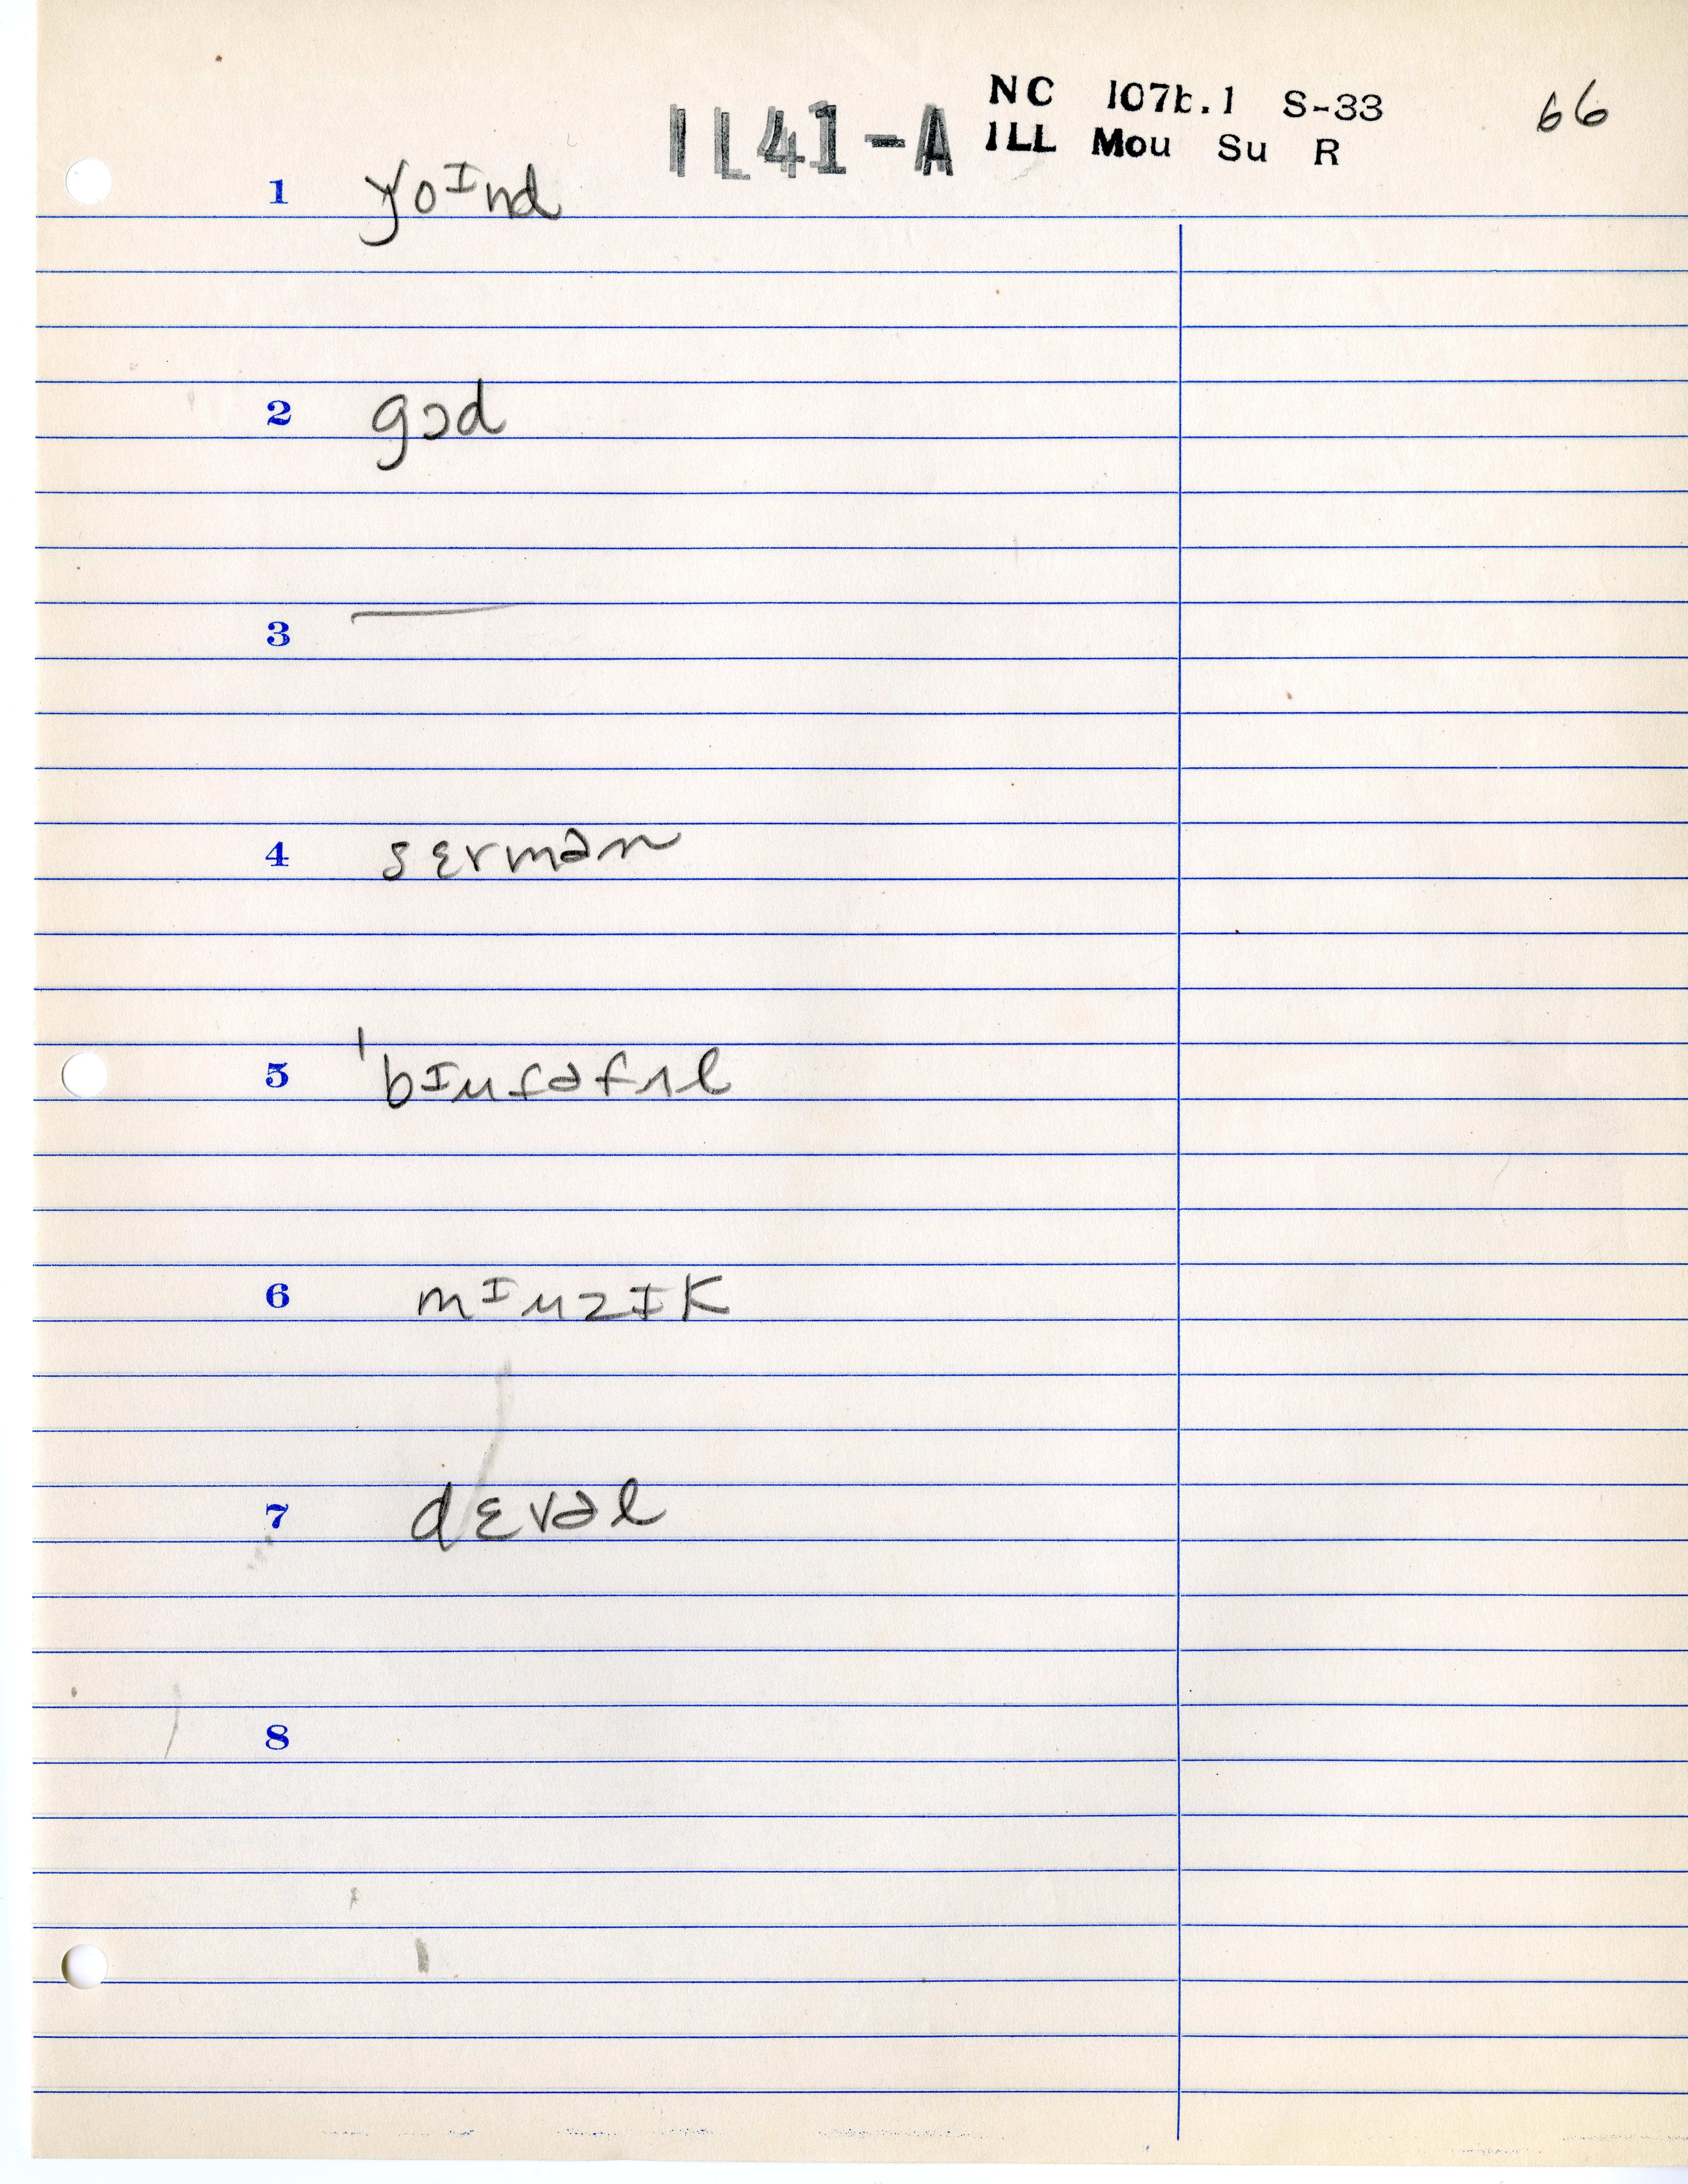 NC 107b.1 S-33
IL41-A
ILL Mou Su R
66
1 ɏoᴵnd
2 gɔd
3 —
4 sɛrmən
5 'bᴵuɾəfʌl
6 mᴵuzɪk
7 dɛvəl
8